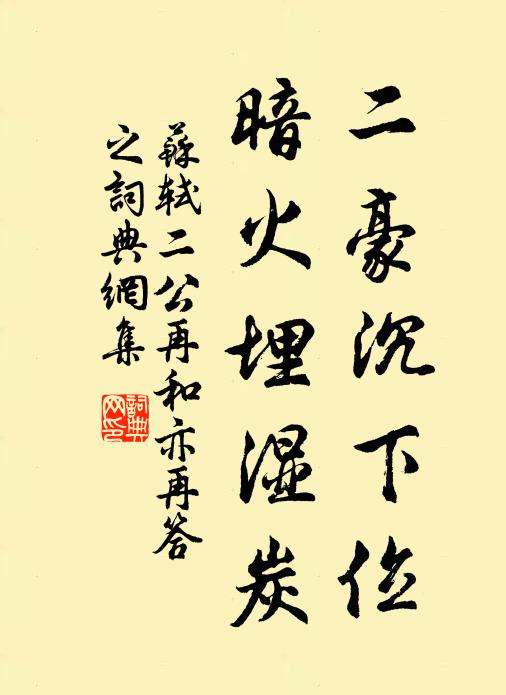 二豪沉下位
暗火埋湿炭
蘇軾二公再和亦再答
之詞典網集
詞典
网印